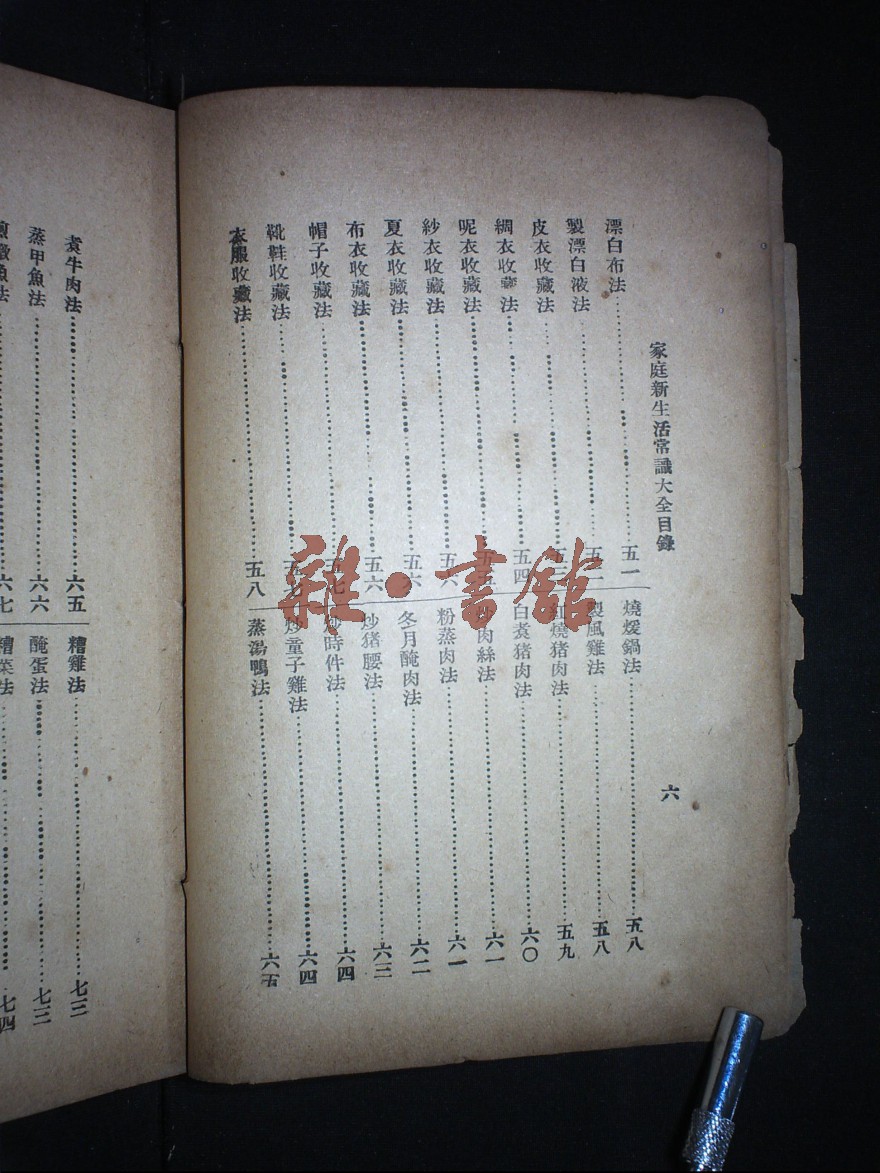 家庭新生活常識大全目錄
六
漂白布法⋯⋯五一
製漂白液法⋯⋯五二
皮衣收藏法⋯⋯五三
綢衣收藏法⋯⋯五四
呢衣收藏法⋯⋯五五
紗衣收藏法⋯⋯五六
夏衣收藏法⋯⋯五六
布衣收藏法⋯⋯五六
帽子收藏法⋯⋯五七
靴鞋收藏法⋯⋯五七
衣服收藏法⋯⋯五八
燒煖鍋法⋯⋯五八
製風雞法⋯⋯五八
紅燒猪肉法⋯⋯五九
白煑猪肉法⋯⋯六〇
炒肉絲法⋯⋯六一
粉蒸肉法⋯⋯六一
冬月醃肉法⋯⋯六二
炒猪腰法⋯⋯六三
炒時件法⋯⋯六四
炒童子雞法⋯⋯六四
蒸湯鴨法⋯⋯六五
煑牛肉法⋯⋯六五
蒸甲魚法⋯⋯六六
魚法⋯⋯六七
糟雞法⋯⋯七三
醃蛋法⋯⋯七三
糟菜法⋯⋯七四
雜·書館